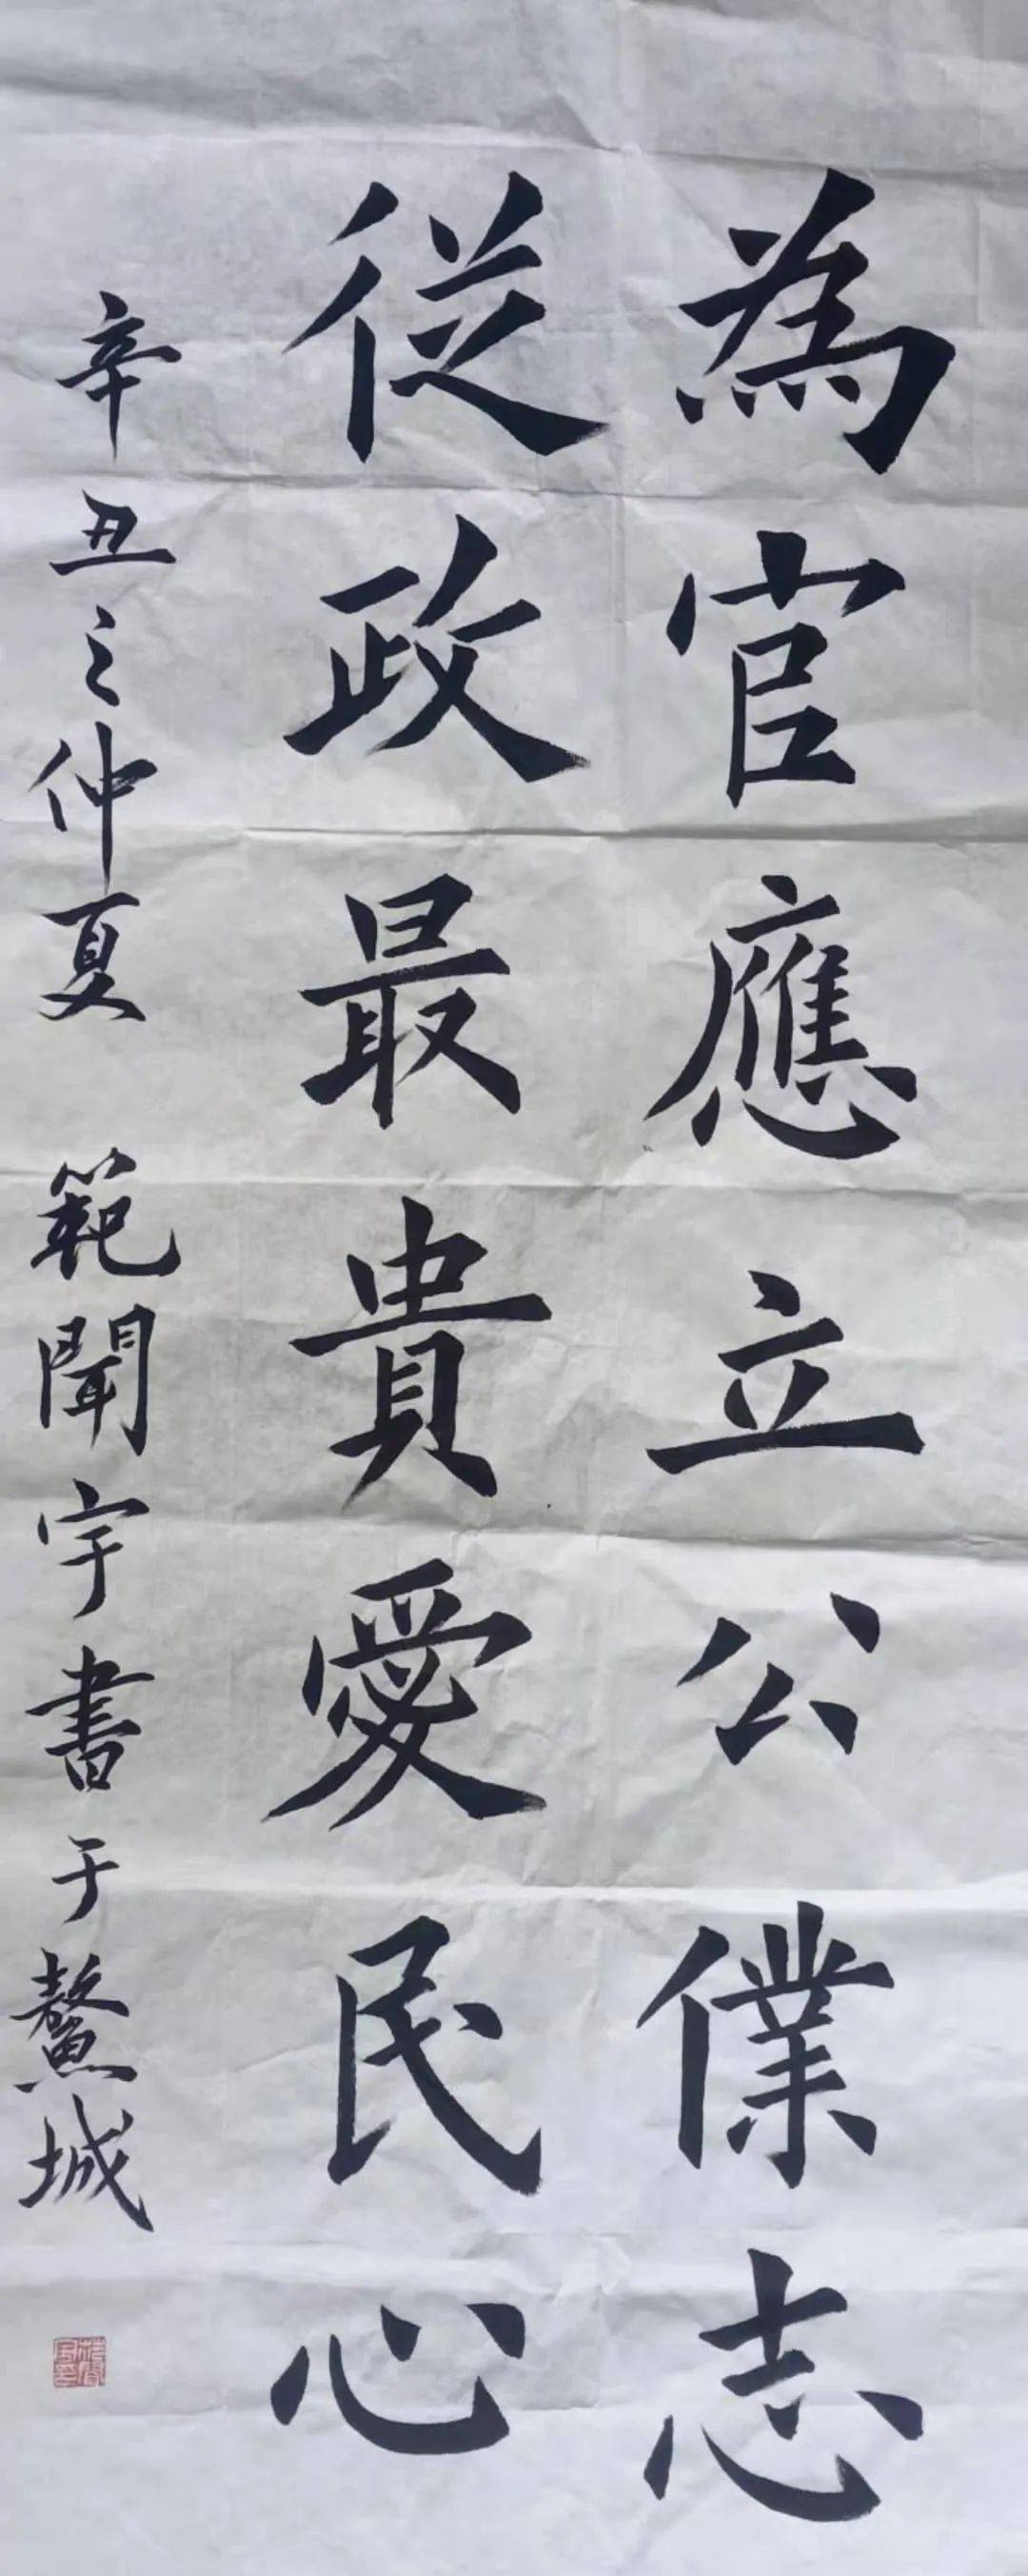 為官應立公僕志
従政最貴愛民心
辛丑之仲夏 範聞宇書于鰲城